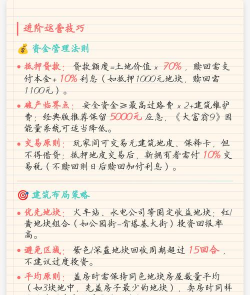 进阶运营技巧
💰 资金管理法则
• 抵押贷款：贷款额度=土地价值 × 70%，赎回需支
付本金+10%利息（如抵押1000元地块，赎回需
1100元）。
• 破产临界点：安全资金≥最高过路费×2+建筑维护
费；经典版推荐保留5000元应急，《大富翁9》因
能量系统可适当降低。
• 交易原则：玩家间可交易无建筑地皮、保释卡，但
不得借贷；抵押地皮交易后，新拥有者需付10%交
易税（不赎回则日后赎回加付利息）。
🎯 建筑布局策略
• 优先地块：火车站、水电公司等固定收益地块；红/
黄地块组合（如公园街-肯塔基大街）投资回报率
高。
• 避免区域：紫色/深蓝地块回收周期超过15回合，
不建议过度投资。
• 平均原则：盖房时需保持同色地块房屋数量平均
（如3块地中，先盖房子最少的地块），卖房时同样